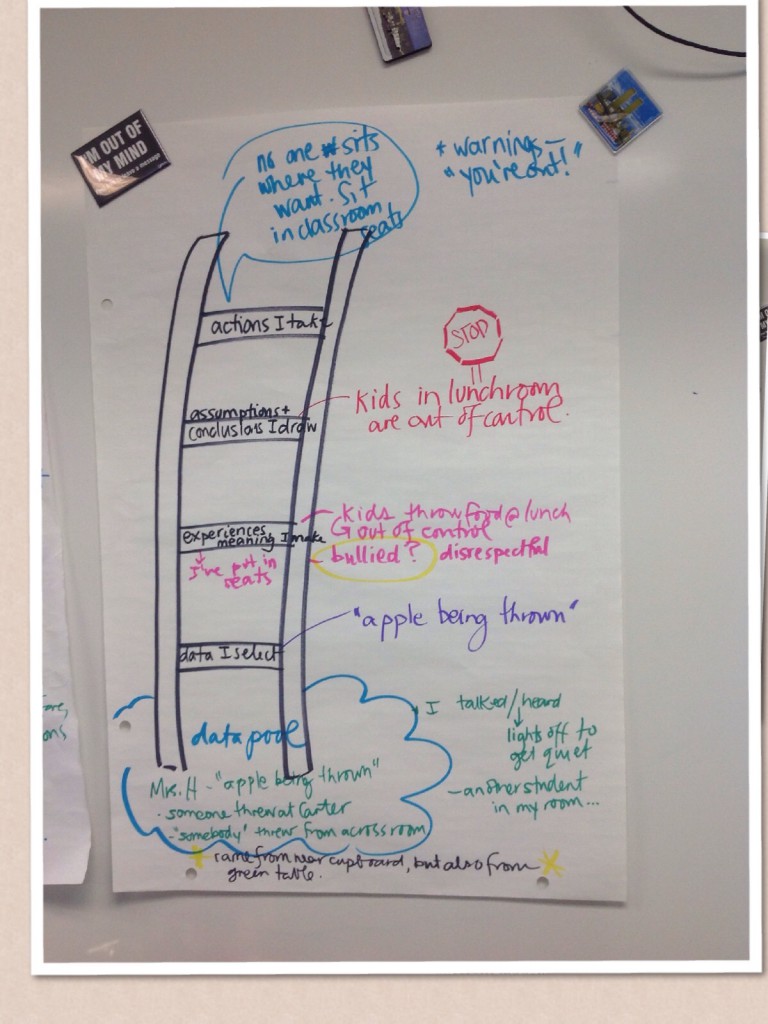 I'M OUT OF
MY MIND
no one sits
where they
want. Sit
in classroom
seats
* warnings –
"you're out!"
actions I take
STOP
assumptions +
conclusions I draw
kids in lunchroom
are out of control.
experiences
meaning I make
I've put in
seats
kids throw food @ lunch
out of control
bullied? disrespectful
data I select
"apple being thrown"
data pool
Mrs. H - "apple being thrown"
· someone threw at Carter
- "somebody" threw from across room
I talked/heard
lights off to
get quiet
- another student
in my room...
came from near cupboard, but also from
green table.
ons